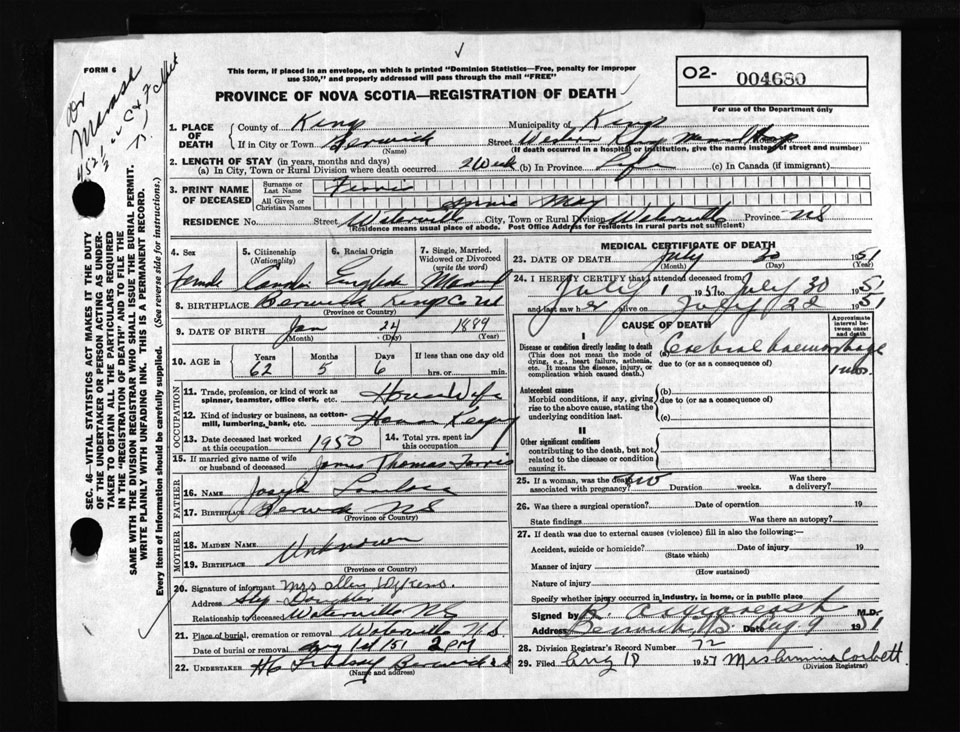 FORM 6
This form, if placed in an envelope, on which is printed "Dominion Statistics—Free, penalty for improper
use $300," and properly addressed will pass through the mail "FREE"
O2- 004680
For the use of the Department only
PROVINCE OF NOVA SCOTIA—REGISTRATION OF DEATH
1. PLACE OF DEATH
County of Kings Municipality of Kings
If in City or Town Berwick Street Western Kings Memorial Hosp
(Name) (If death occurred in a hospital or institution, give the name instead of street and number)
2. LENGTH OF STAY (in years, months and days)
(a) In City, Town or Rural Division where death occurred 2 Week (b) In Province Life (c) In Canada (if immigrant)
3. PRINT NAME OF DECEASED
Surname or Last Name
All Given or Christian Names Annie May
RESIDENCE No. Street Waterville City, Town or Rural Division Waterville Province NS
(Residence means usual place of abode. Post Office Address for residents in rural parts not sufficient)
4. Sex
Female
5. Citizenship (Nationality)
6. Racial Origin
English
7. Single, Married, Widowed or Divorced (write the word)
Married
8. BIRTHPLACE Berwick Kings Co NS
(Province or Country)
9. DATE OF BIRTH Jan 24 1889
(Month) (Day)
10. AGE in Years Months Days If less than one day old
62 5 6 hrs. or min.
OCCUPATION
11. Trade, profession, or kind of work as spinner, teamster, office clerk, etc. House Wife
12. Kind of industry or business, as cotton-mill, lumbering, bank, etc.
13. Date deceased last worked at this occupation 1950
14. Total yrs. spent in this occupation
15. If married give name of wife or husband of deceased James Thomas
FATHER
16. NAME Joseph
17. BIRTHPLACE Berwick NS
(Province or Country)
MOTHER
18. MAIDEN NAME Unknown
19. BIRTHPLACE
(Province or Country)
20. Signature of informant Mrs Allen
Address
Relationship to deceased Step Daughter Waterville NS
21. Place of burial, cremation or removal Waterville N.S.
Date of burial or removal Aug 1st 1951 2 PM
22. UNDERTAKER H C Lindsay Berwick NS
(Name and address)
MEDICAL CERTIFICATE OF DEATH
23. DATE OF DEATH July 30 1951
(Month) (Day) (Year)
24. I HEREBY CERTIFY that I attended deceased from
July 1 1951 July 30 1951
and last saw her alive on July 1951
CAUSE OF DEATH
Approximate interval between onset and death
I
Disease or condition directly leading to death
(This does not mean the mode of dying, e.g., heart failure, asthenia, etc. It means the disease, injury, or complication which caused death.)
(a) Cerebral haemorrhage
due to (or as a consequence of)
1 mo.
Antecedent causes
Morbid conditions, if any, giving rise to the above cause, stating the underlying condition last.
(b)
due to (or as a consequence of)
(c)
II
Other significant conditions
contributing to the death, but not related to the disease or condition causing it.
25. If a woman, was the death associated with pregnancy? no Duration weeks. Was there a delivery?
26. Was there a surgical operation? Date of operation 19
State findings Was there an autopsy?
27. If death was due to external causes (violence) fill in also the following:—
Accident, suicide or homicide? Date of injury 19
(State which)
Manner of injury
(How sustained)
Nature of injury
Specify whether injury occurred in industry, in home, or in public place
Signed by M.D.
Address Berwick NS Date Aug 9 1951
28. Division Registrar's Record Number 72
29. Filed Aug 18 1951 Corbett
(Division Registrar)
SEC. 46—VITAL STATISTICS ACT MAKES IT THE DUTY
OF THE UNDERTAKER OR PERSON ACTING AS UNDER-
TAKER TO OBTAIN ALL THE PARTICULARS REQUIRED
IN THE "REGISTRATION OF DEATH" AND TO FILE THE
SAME WITH THE DIVISION REGISTRAR WHO SHALL ISSUE THE BURIAL PERMIT.
WRITE PLAINLY WITH UNFADING INK. THIS IS A PERMANENT RECORD.
Every item of information should be carefully supplied. (See reverse side for instructions.)